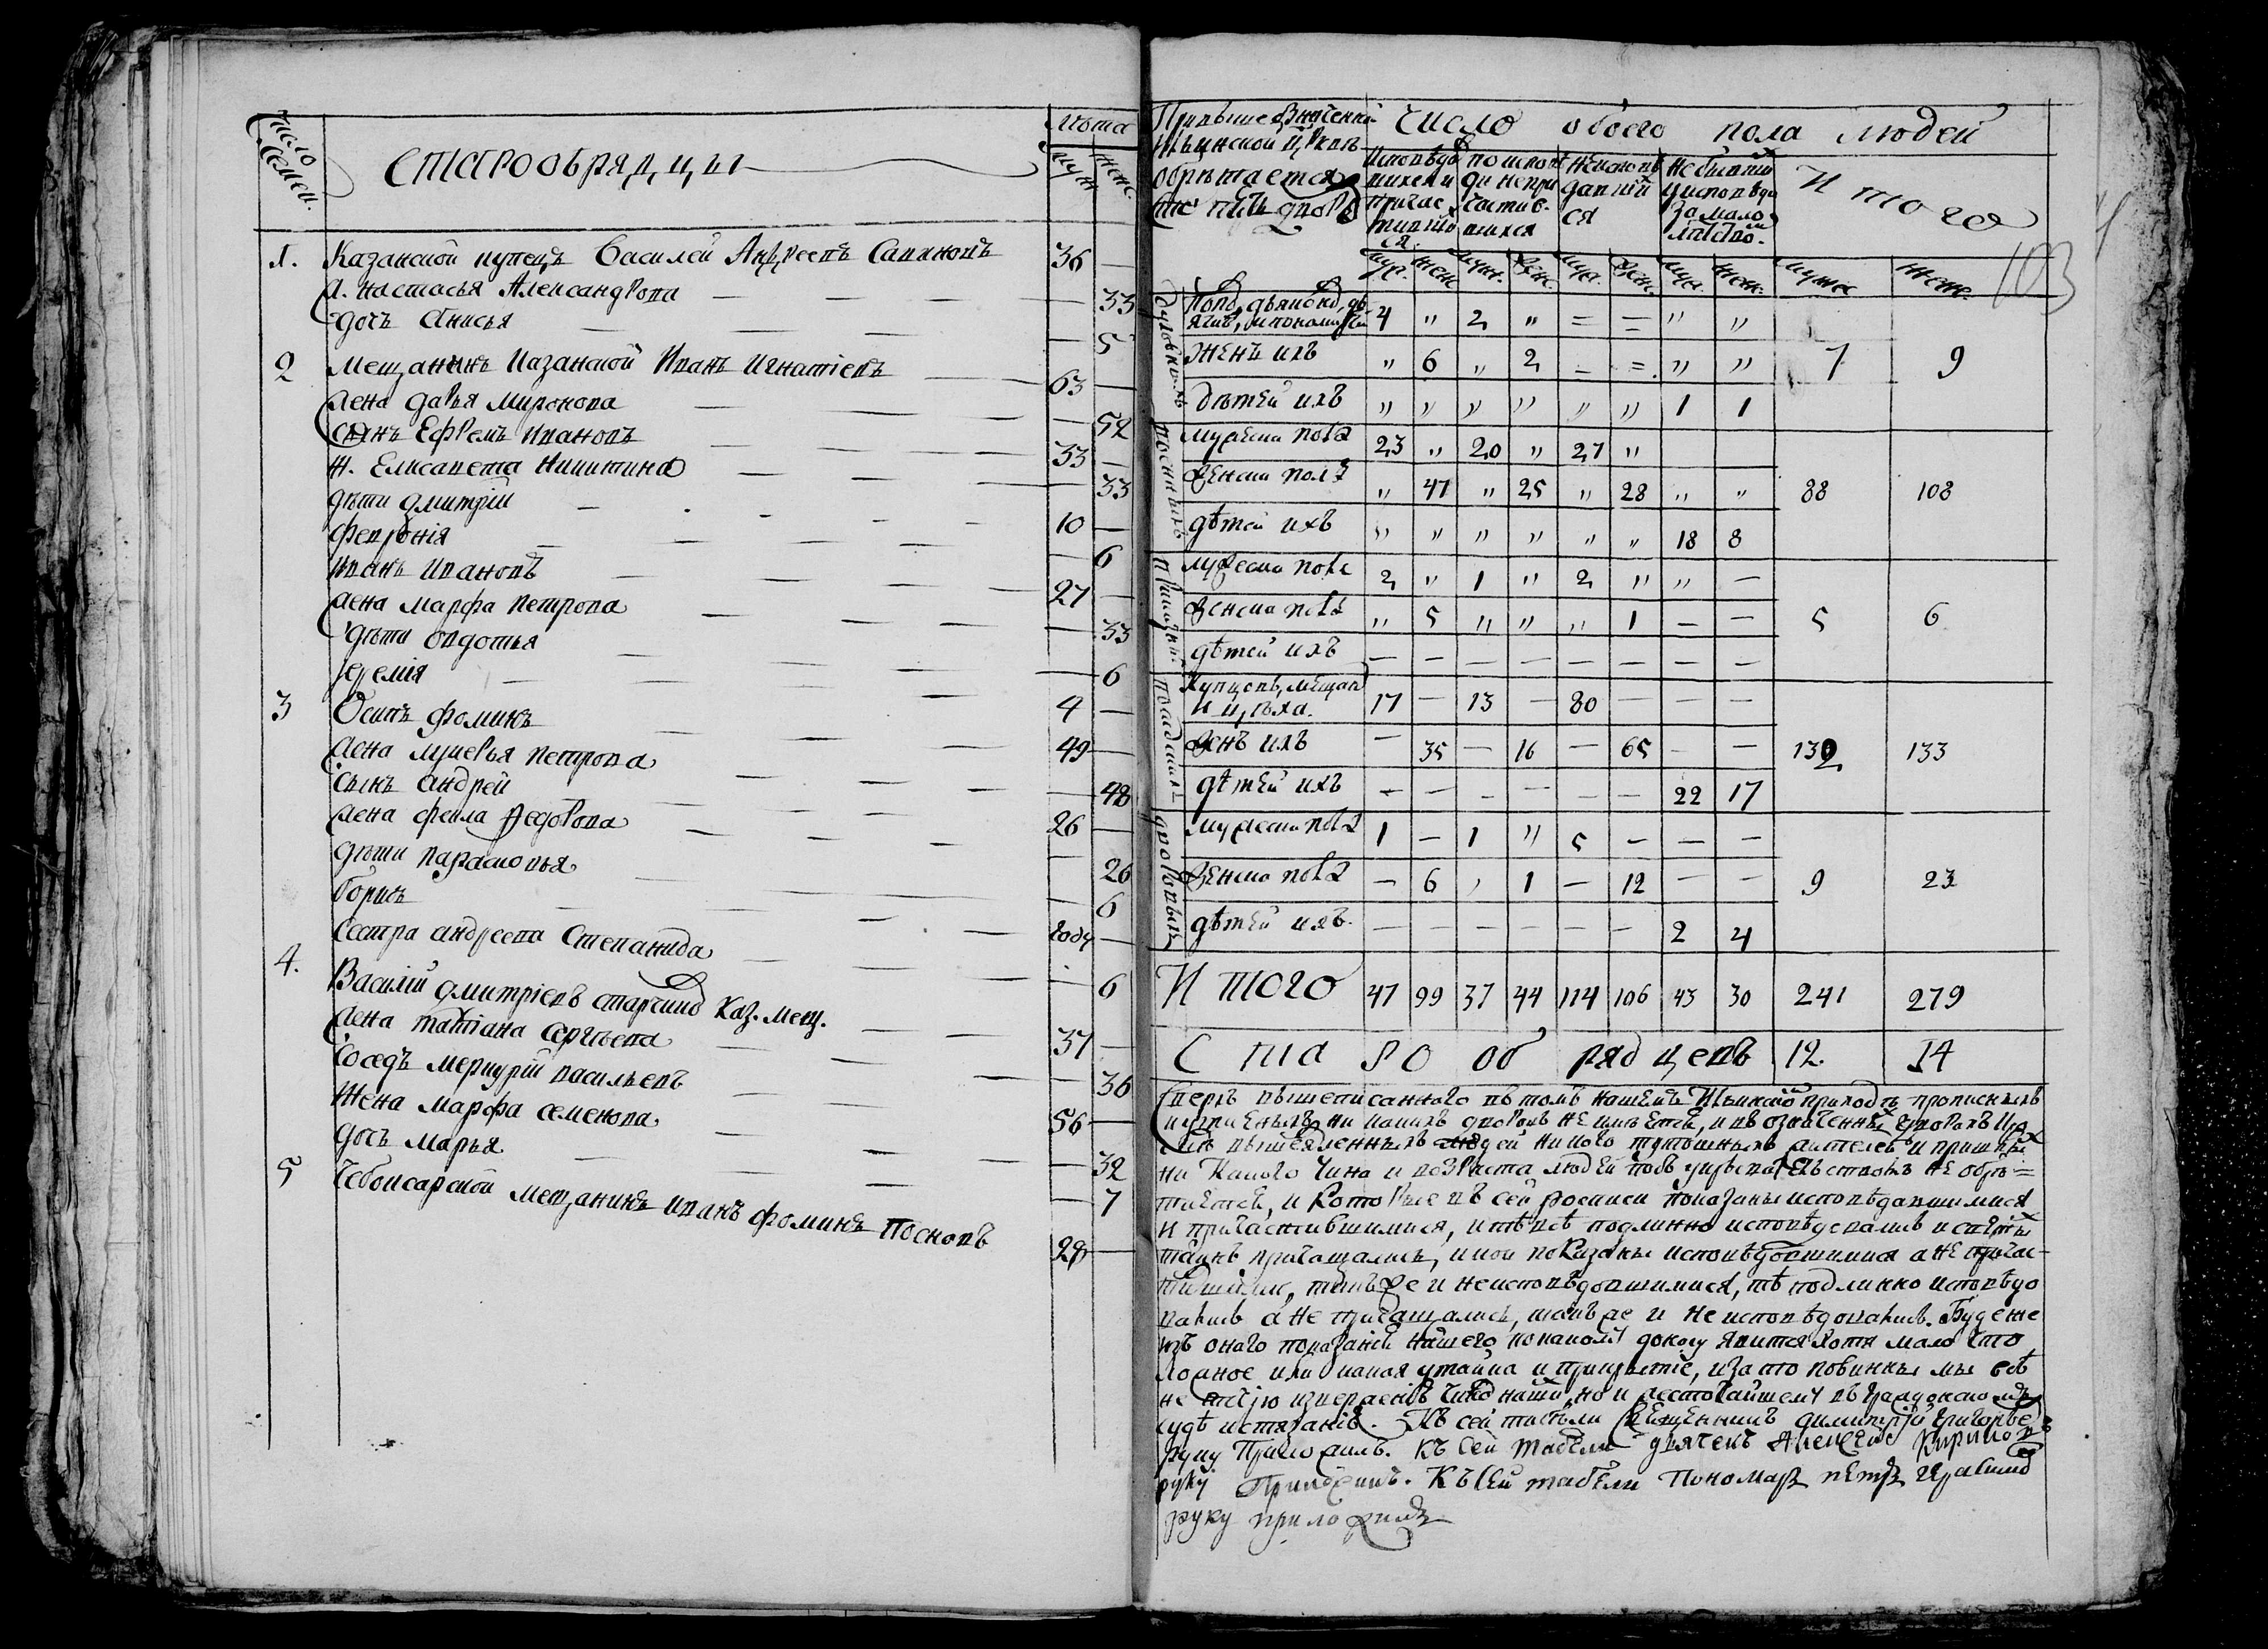 число семей.
старообрядцы
лѣта
муж
жен.
1. Казанской купецъ Василей Андреевъ Савиновъ 36 —
ж. настасья Александрова — — — — 33
дочь Анисья — — — — 5
2 Мещанинъ казанской Иванъ Игнатіевъ — 63 —
жена дарья миронова — — — 52
сынъ Ефремъ Ивановъ — — — 33 —
ж. Елисавета никитина — — — 33
дѣти дмитрій — — — 10 —
феврония — — — — 6
Иванъ Ивановъ — — — 27 —
жена марфа петрова — — — 33
дѣти овдотья — — — 6
Іеремія — — — 4 —
3 Осипъ фоминъ — — — 49 —
жена лукерья петрова — — — 48
сынъ андрей — — — 26 —
жена фекла Федорова — — — 26
дѣти парасковья — — — 6
борисъ — — — году —
Сестра андреева Степанида — — — 6
4. Василій дмитріевъ Каз. мещ. — 37 —
жена татіана сергѣева — — — 36
соседъ меркурій васильевъ — — — 56 —
Жена марфа семенова — — — 32
дочь марья — — — 7
5 Чебоксарской мещанинъ иванъ фоминъ 29 —
При выше означенной
Ильинской црквѣ
обрѣтается
число обоего пола людей
исповѣдавшихся и причастившихся
по исповѣди непричастившихся
неисповѣдавшихся
Не бывшихъ у исповѣди за малолѣтство.
Итого
муж. жен. муж. жен. муж. жен. муж. жен. мужес женс.
103
Духовныхъ
попа, дьякона, дьячка, и пономаря 4 „ 2 „ = = „ „
женъ ихъ „ 6 „ 2 — = „ „ 7 9
дѣтей ихъ „ „ „ „ „ „ 1 1
военныхъ
мужеска пола 23 „ 20 „ 27 „
Женска полу „ 47 „ 25 „ 28 „ „ 88 108
дѣтей ихъ „ „ „ „ „ „ 18 8
приказны
мужеска пола 2 „ 1 „ 2 „ „ —
женска пола „ 5 „ „ „ 1 — — 5 6
дѣтей ихъ — — — — — — — —
посадских
купцовъ, мещан и цѣха. 17 — 13 — 80 — — —
женъ ихъ — 35 — 16 — 65 — — 132 133
дѣтей ихъ — — — — — — 22 17
дворовыхъ
мужеска пола 1 — 1 „ 5 — — —
женска пола — 6 „ 1 — 12 — — 9 23
дѣтей ихъ. — — — — — — 2 4
Итого 47 99 37 44 114 106 43 30 241 279
Старообрядцевъ 12. 14
Сверхъ вышеписанного въ томъ нашемъ Ильинской приходѣ прописныхъ
и утаенныхъ ни какихъ дворовъ не имѣется, и въ означенныхъ дворахъ
вышеявленныхъ людей никого тутошныхъ жителей и пришлы
ни какого чина и возраста людей обрѣ=
тается, и которые въ сей росписи показаны исповѣдавшимися
и причастившимися, и тѣ всѣ подлинно исповѣдовались и святыхъ
таинъ причащались, и кои показаны исповѣдовшимися а не причас-
тившимис, такъ же и неисповѣдовшимися, тѣ подлинно исповѣдо
вались а не причащались, такъ же и не исповѣдовались. Буде же
изъ оного показанія нашего по какому доносу явится хотя мало что
ложное или какая утайка и прикрытіе, и за то повинны мы всѣ
не точію изверженію чина наши, но и жесточайшему въ градскомъ
судѣ истязанію. Къ сей табели Священникъ димитрій григорьевъ
руку Приложилъ. Къ сей табели дьячекъ Алексѣй
руку Приложилъ. Къ сей табели Пономарь петръ
руку приложилъ